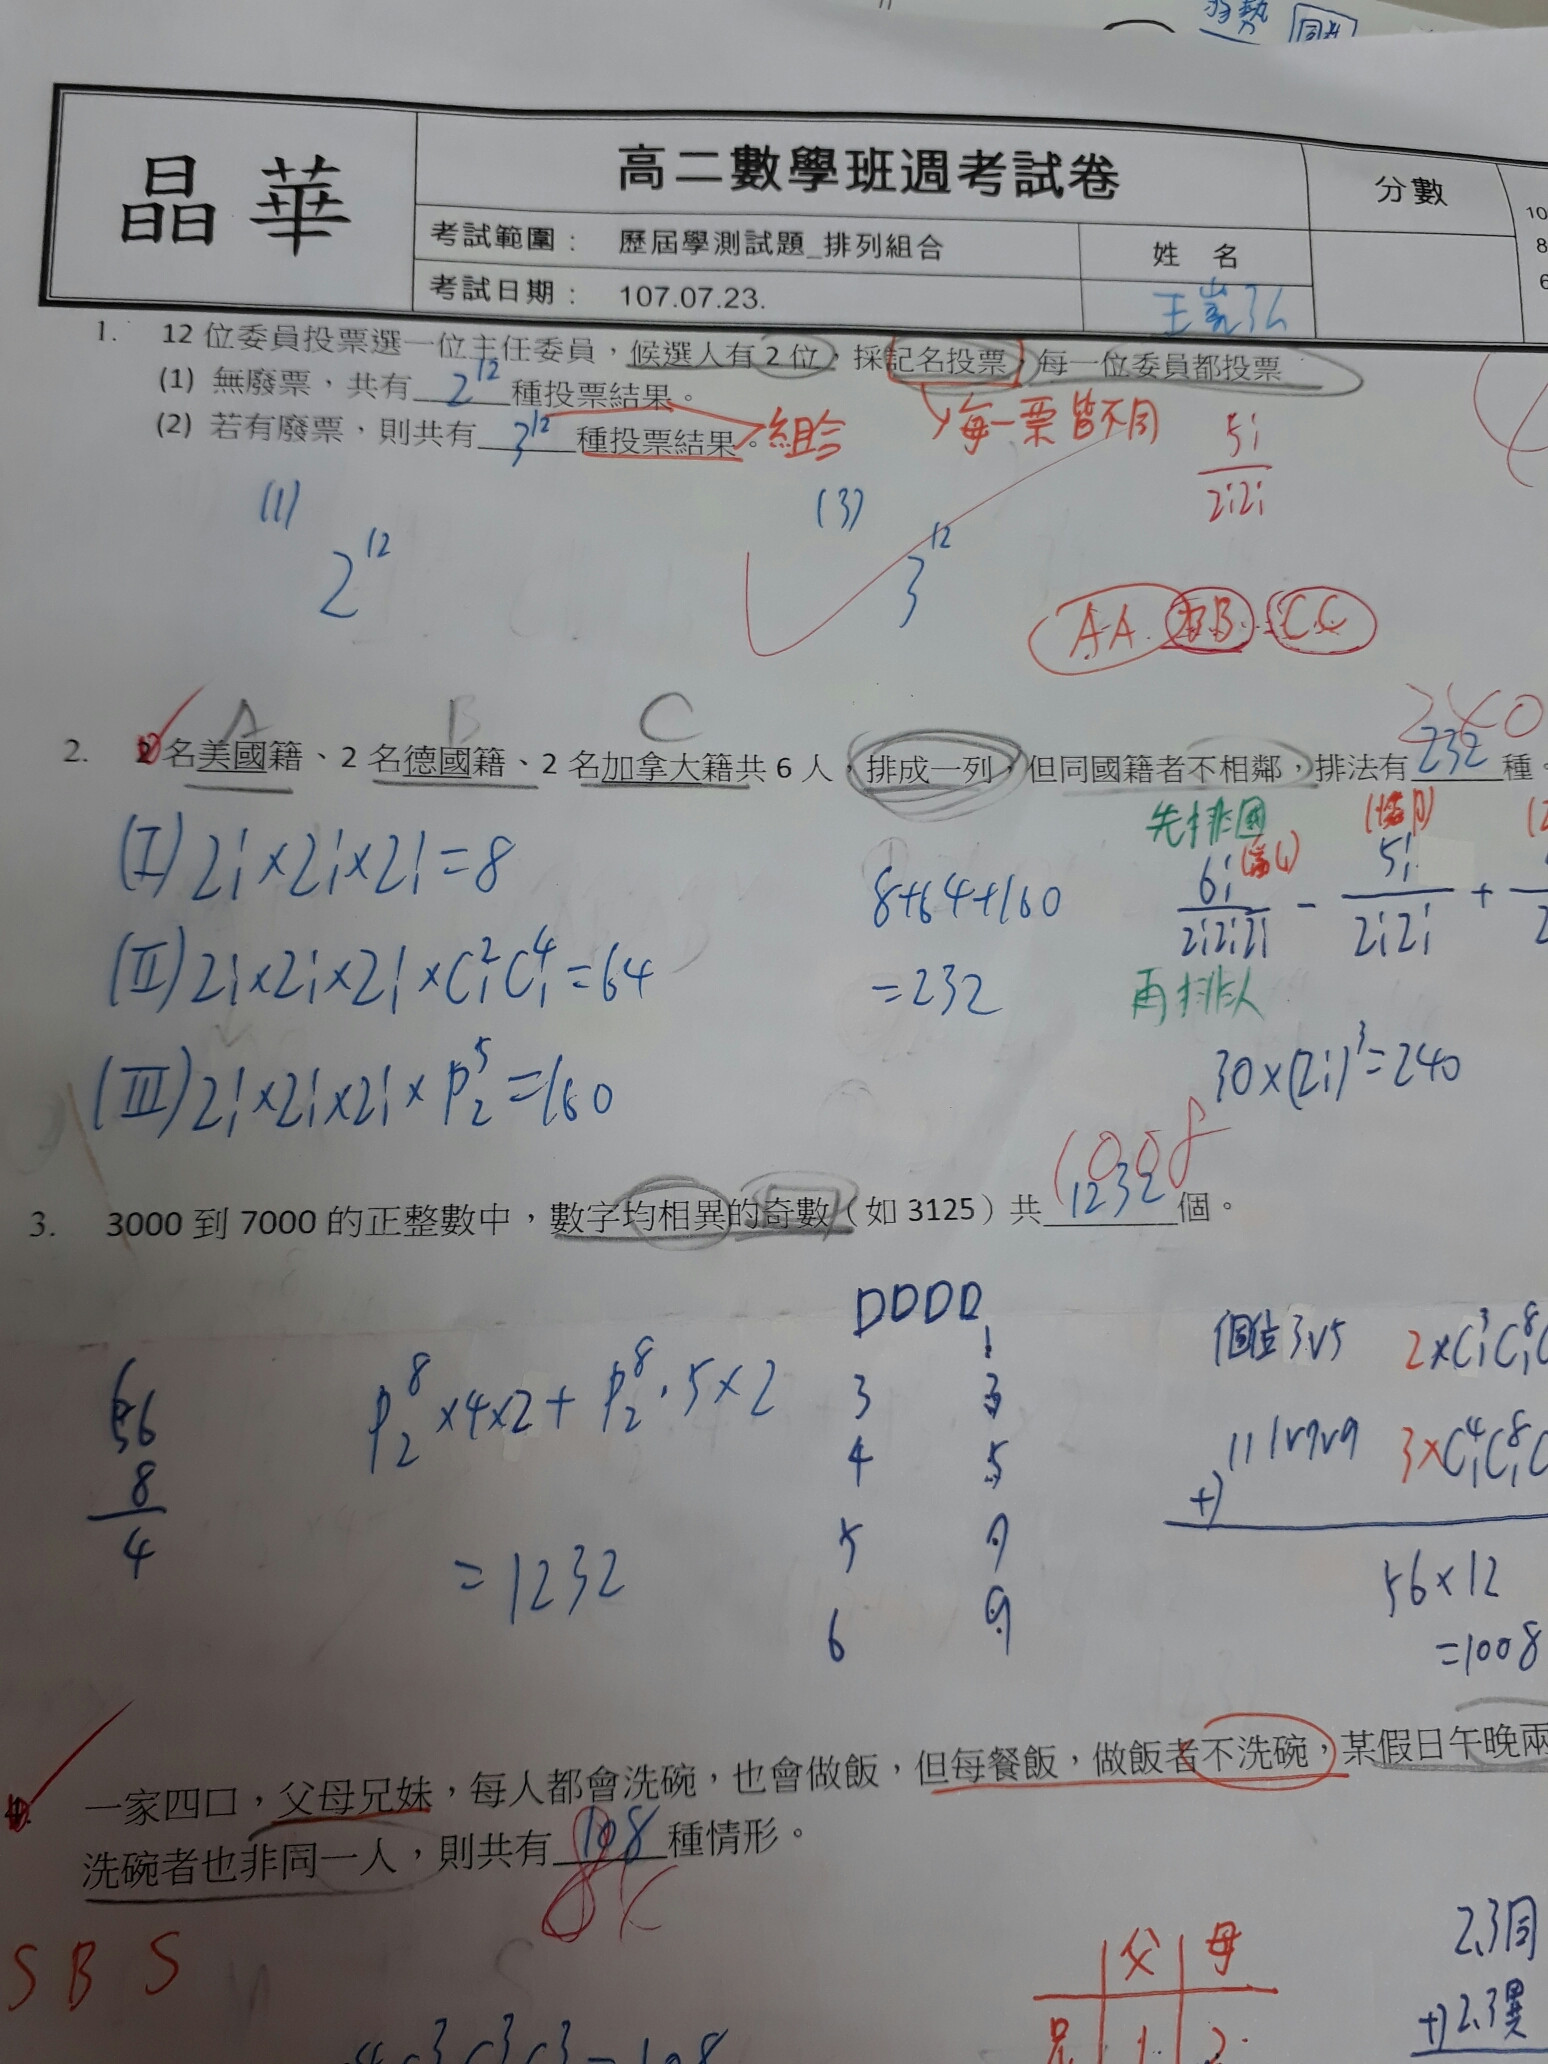 弱勢 同
晶華
高二數學班週考試卷
分數
考試範圍： 歷屆學測試題_排列組合
姓 名
考試日期： 107.07.23.
10
8
6
1. 12 位委員投票選一位主任委員，候選人有 2 位，採記名投票，每一位委員都投票
(1) 無廢票，共有 2^12 種投票結果。
(2) 若有廢票，則共有 3^12 種投票結果。
組合
每一票皆不同
5!
2!2!
(1)
2^12
(3)
3^12
AA BB CC
A B C
240
2. 2 名美國籍、2 名德國籍、2 名加拿大籍共 6 人，排成一列，但同國籍者不相鄰，排法有 232 種。
(I) 2!×2!×2!=8
(II) 2!×2!×2!×C^2_1C^4_1=64
(III) 2!×2!×2!×P^5_2=160
8+64+160
=232
先排國
6!/2!2!2! - 5!/2!2! +
再排人
30×(2!)^3=240
1008
3. 3000 到 7000 的正整數中，數字均相異的奇數（如 3125）共 1232 個。
56
8
4
P^8_2×4×2+P^8_2·5×2
=1232
1
3 3
4 5
5 7
6 9
個位3v5 2×C^3_1C^8_1C
11 1v7v9 3×C^4_1C^8_1C
+)
56×12
=1008
4. 一家四口，父母兄妹，每人都會洗碗，也會做飯，但每餐飯，做飯者不洗碗，某假日午晚兩
洗碗者也非同一人，則共有 108 種情形。
84
S B S
父 母
兄 1 2
2.3同
+) 2.3異